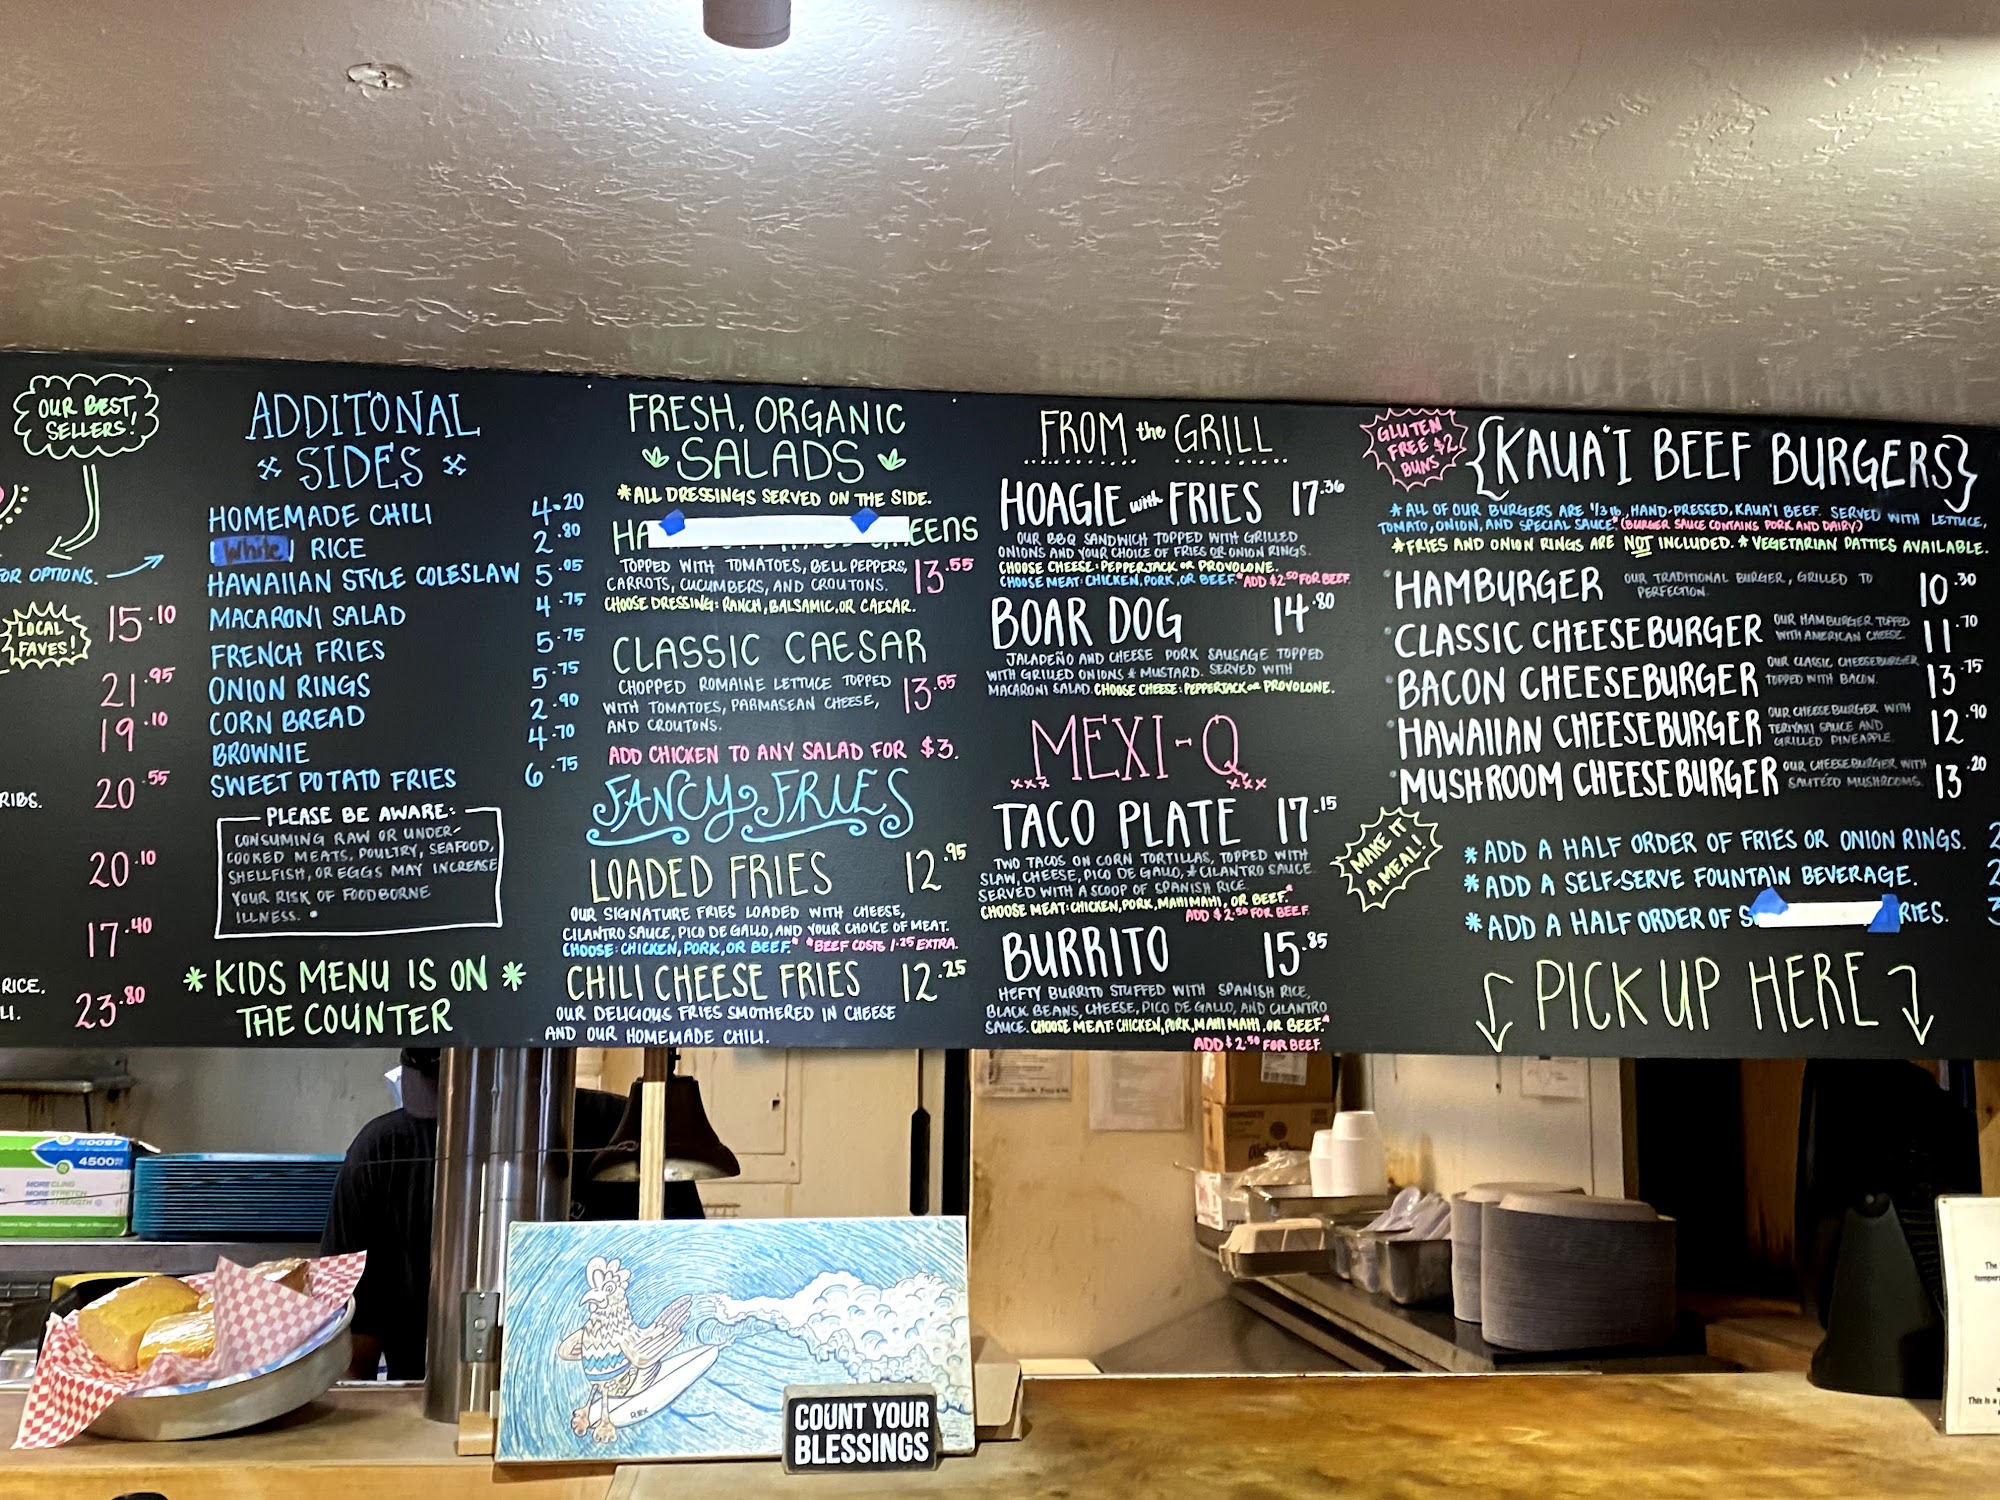 OUR BEST
SELLERS!
FOR OPTIONS.
LOCAL
FAVES!
15.10
21.95
19.10
RIBS. 20.55
20.10
17.40
RICE.
LI. 23.80
ADDITONAL
SIDES
HOMEMADE CHILI 4.20
White RICE 2.80
HAWAIIAN STYLE COLESLAW 5.05
MACARONI SALAD 4.75
FRENCH FRIES 5.75
ONION RINGS 5.75
CORN BREAD 2.90
BROWNIE 4.70
SWEET POTATO FRIES 6.75
PLEASE BE AWARE:
CONSUMING RAW OR UNDER-
COOKED MEATS, POULTRY, SEAFOOD,
SHELLFISH, OR EGGS MAY INCREASE
YOUR RISK OF FOODBORNE
ILLNESS.
* KIDS MENU IS ON *
THE COUNTER
FRESH, ORGANIC
SALADS
*ALL DRESSINGS SERVED ON THE SIDE.
HA EENS
TOPPED WITH TOMATOES, BELL PEPPERS, 13.55
CARROTS, CUCUMBERS, AND CROUTONS.
CHOOSE DRESSING: RANCH, BALSAMIC, OR CAESAR.
CLASSIC CAESAR
CHOPPED ROMAINE LETTUCE TOPPED 13.55
WITH TOMATOES, PARMASEAN CHEESE,
AND CROUTONS.
ADD CHICKEN TO ANY SALAD FOR $3.
FANCY FRIES
LOADED FRIES 12.95
OUR SIGNATURE FRIES LOADED WITH CHEESE,
CILANTRO SAUCE, PICO DE GALLO, AND YOUR CHOICE OF MEAT.
CHOOSE: CHICKEN, PORK, OR BEEF.* *BEEF COSTS 1.25 EXTRA.
CHILI CHEESE FRIES 12.25
OUR DELICIOUS FRIES SMOTHERED IN CHEESE
AND OUR HOMEMADE CHILI.
FROM the GRILL
HOAGIE with FRIES 17.36
OUR BBQ SANDWICH TOPPED WITH GRILLED
ONIONS AND YOUR CHOICE OF FRIES OR ONION RINGS.
CHOOSE CHEESE: PEPPERJACK OR PROVOLONE.
CHOOSE MEAT: CHICKEN, PORK, OR BEEF.* ADD $2.50 FOR BEEF.
BOAR DOG 14.80
JALAPEÑO AND CHEESE PORK SAUSAGE TOPPED
WITH GRILLED ONIONS & MUSTARD. SERVED WITH
MACARONI SALAD. CHOOSE CHEESE: PEPPERJACK OR PROVOLONE.
MEXI-Q
xxx xxx
TACO PLATE 17.15
TWO TACOS ON CORN TORTILLAS, TOPPED WITH
SLAW, CHEESE, PICO DE GALLO, & CILANTRO SAUCE.
SERVED WITH A SCOOP OF SPANISH RICE.
CHOOSE MEAT: CHICKEN, PORK, MAHI MAHI, OR BEEF.*
ADD $2.50 FOR BEEF
BURRITO 15.85
HEFTY BURRITO STUFFED WITH SPANISH RICE,
BLACK BEANS, CHEESE, PICO DE GALLO, AND CILANTRO
SAUCE. CHOOSE MEAT: CHICKEN, PORK, MAHI MAHI, OR BEEF.*
ADD $2.50 FOR BEEF.
GLUTEN
FREE $2
BUNS
{KAUA'I BEEF BURGERS}
*ALL OF OUR BURGERS ARE 1/3 lb, HAND-PRESSED, KAUA'I BEEF. SERVED WITH LETTUCE,
TOMATO, ONION, AND SPECIAL SAUCE.* (BURGER SAUCE CONTAINS PORK AND DAIRY)
*FRIES AND ONION RINGS ARE NOT INCLUDED. * VEGETARIAN PATTIES AVAILABLE.
HAMBURGER OUR TRADITIONAL BURGER, GRILLED TO PERFECTION. 10.30
CLASSIC CHEESEBURGER OUR HAMBURGER TOPPED WITH AMERICAN CHEESE. 11.70
BACON CHEESEBURGER OUR CLASSIC CHEESEBURGER TOPPED WITH BACON. 13.75
HAWAIIAN CHEESEBURGER OUR CHEESEBURGER WITH TERIYAKI SAUCE AND GRILLED PINEAPPLE 12.90
MUSHROOM CHEESEBURGER OUR CHEESEBURGER WITH SAUTÉED MUSHROOMS. 13.20
MAKE IT
A MEAL!
* ADD A HALF ORDER OF FRIES OR ONION RINGS. 2
* ADD A SELF-SERVE FOUNTAIN BEVERAGE. 2
* ADD A HALF ORDER OF S RIES. 3
PICK UP HERE
4500
MORE CLING
MORE STRETCH
MORE STRENGTH
REX
COUNT YOUR
BLESSINGS
The
temper
This is a